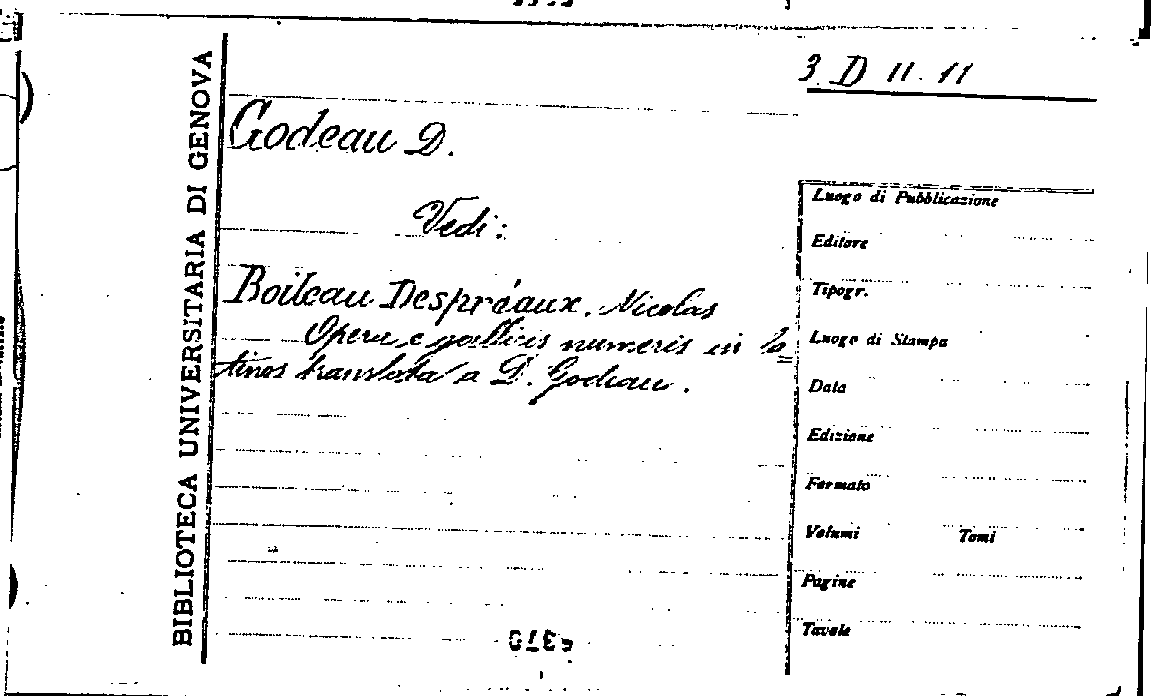 BIBLIOTECA UNIVERSITARIA DI GENOVA
3 D 11. 11
Godeau D.
Vedi:
Boileau Despréaux. Nicolas
Opera e gallicis numeris in la=
tinos translata a D. Godeau.
Luogo di Pubblicazione
Editore
Tipogr.
Luogo di Stampa
Data
Edizione
Formato
Volumi Tomi
Pagine
Tavole